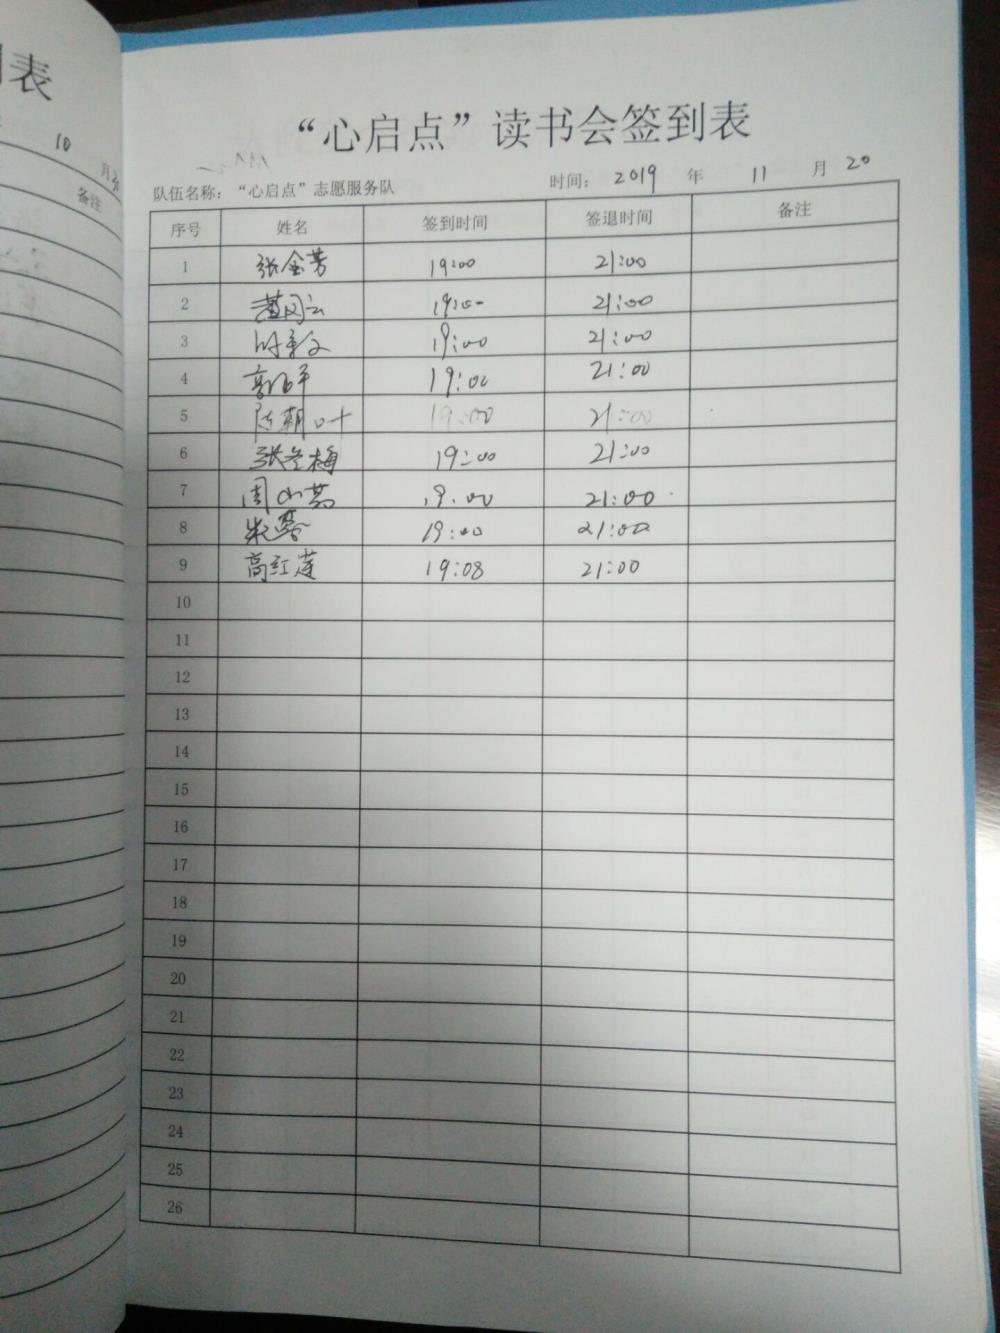 表
10 月
备注
“心启点”读书会签到表
队伍名称：“心启点”志愿服务队 时间： 2019 年 11 月 20
序号 姓名 签到时间 签退时间 备注
1 张金芳 19:00 21:00
2 19:00 21:00
3 19:00 21:00
4 19:00 21:00
5 陈朝叶 19:00 21:00
6 张冬梅 19:00 21:00
7 周小燕 19:00 21:00
8 朱蓉 19:00 21:00
9 高红莲 19:08 21:00
10
11
12
13
14
15
16
17
18
19
20
21
22
23
24
25
26